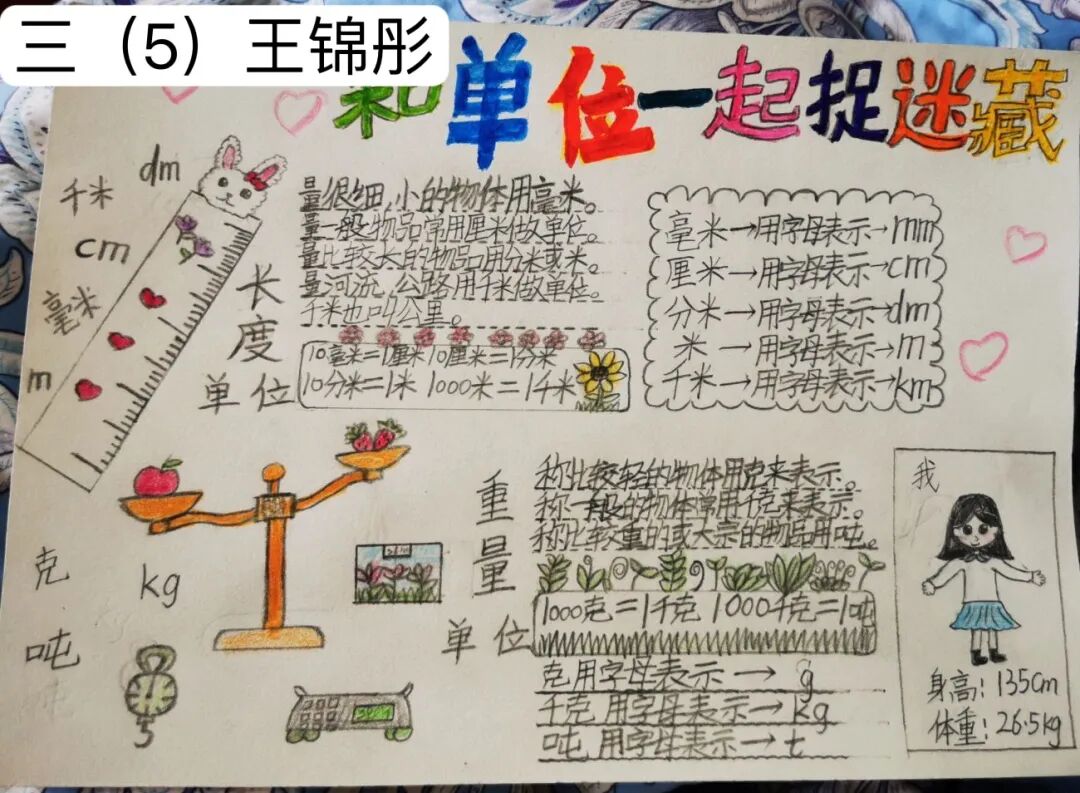 三（5）王锦彤
和单位一起捉迷藏
dm
千米
cm
毫米
m
长度单位
量很细,小的物体用毫米。
量一般物品常用厘米做单位。
量比较大的物品用分米或米。
量河流,公路用千米做单位。
千米也叫公里。
10毫米=1厘米 10厘米=1分米
10分米=1米 1000米=1千米
毫米→用字母表示→mm
厘米→用字母表示→cm
分米→用字母表示→dm
米→用字母表示→m
千米→用字母表示→km
克
kg
吨
重量单位
称比较轻的物体用克来表示。
称一般的物体常用千克来表示。
称比较重的或大宗的物品用吨。
1000克=1千克 1000千克=1吨
克用字母表示→g
千克用字母表示→kg
吨用字母表示→t
我
身高:135cm
体重:26.5kg